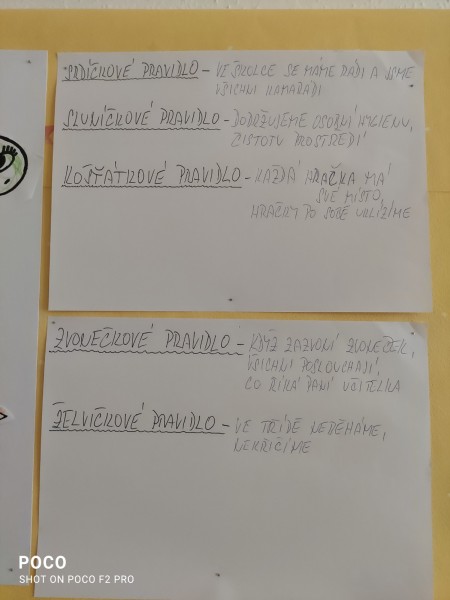 SRDÍČKOVÉ PRAVIDLO - VE ŠKOLCE SE MÁME RÁDI A JSME
VŠICHNI KAMARÁDI
SLUNÍČKOVÉ PRAVIDLO - DODRŽUJEME OSOBNÍ HYGIENU,
ČISTOTU PROSTŘEDÍ
KOŠŤÁTKOVÉ PRAVIDLO - KAŽDÁ HRAČKA MÁ
SVÉ MÍSTO,
HRAČKY PO SOBĚ UKLÍZÍME
ZVONEČKOVÉ PRAVIDLO - KDYŽ ZAZVONÍ ZVONEČEK,
VŠICHNI POSLOUCHAJÍ,
CO ŘÍKÁ PANÍ UČITELKA
ŽELVIČKOVÉ PRAVIDLO - VE TŘÍDĚ NEBĚHÁME,
NEKŘIČÍME
POCO
SHOT ON POCO F2 PRO